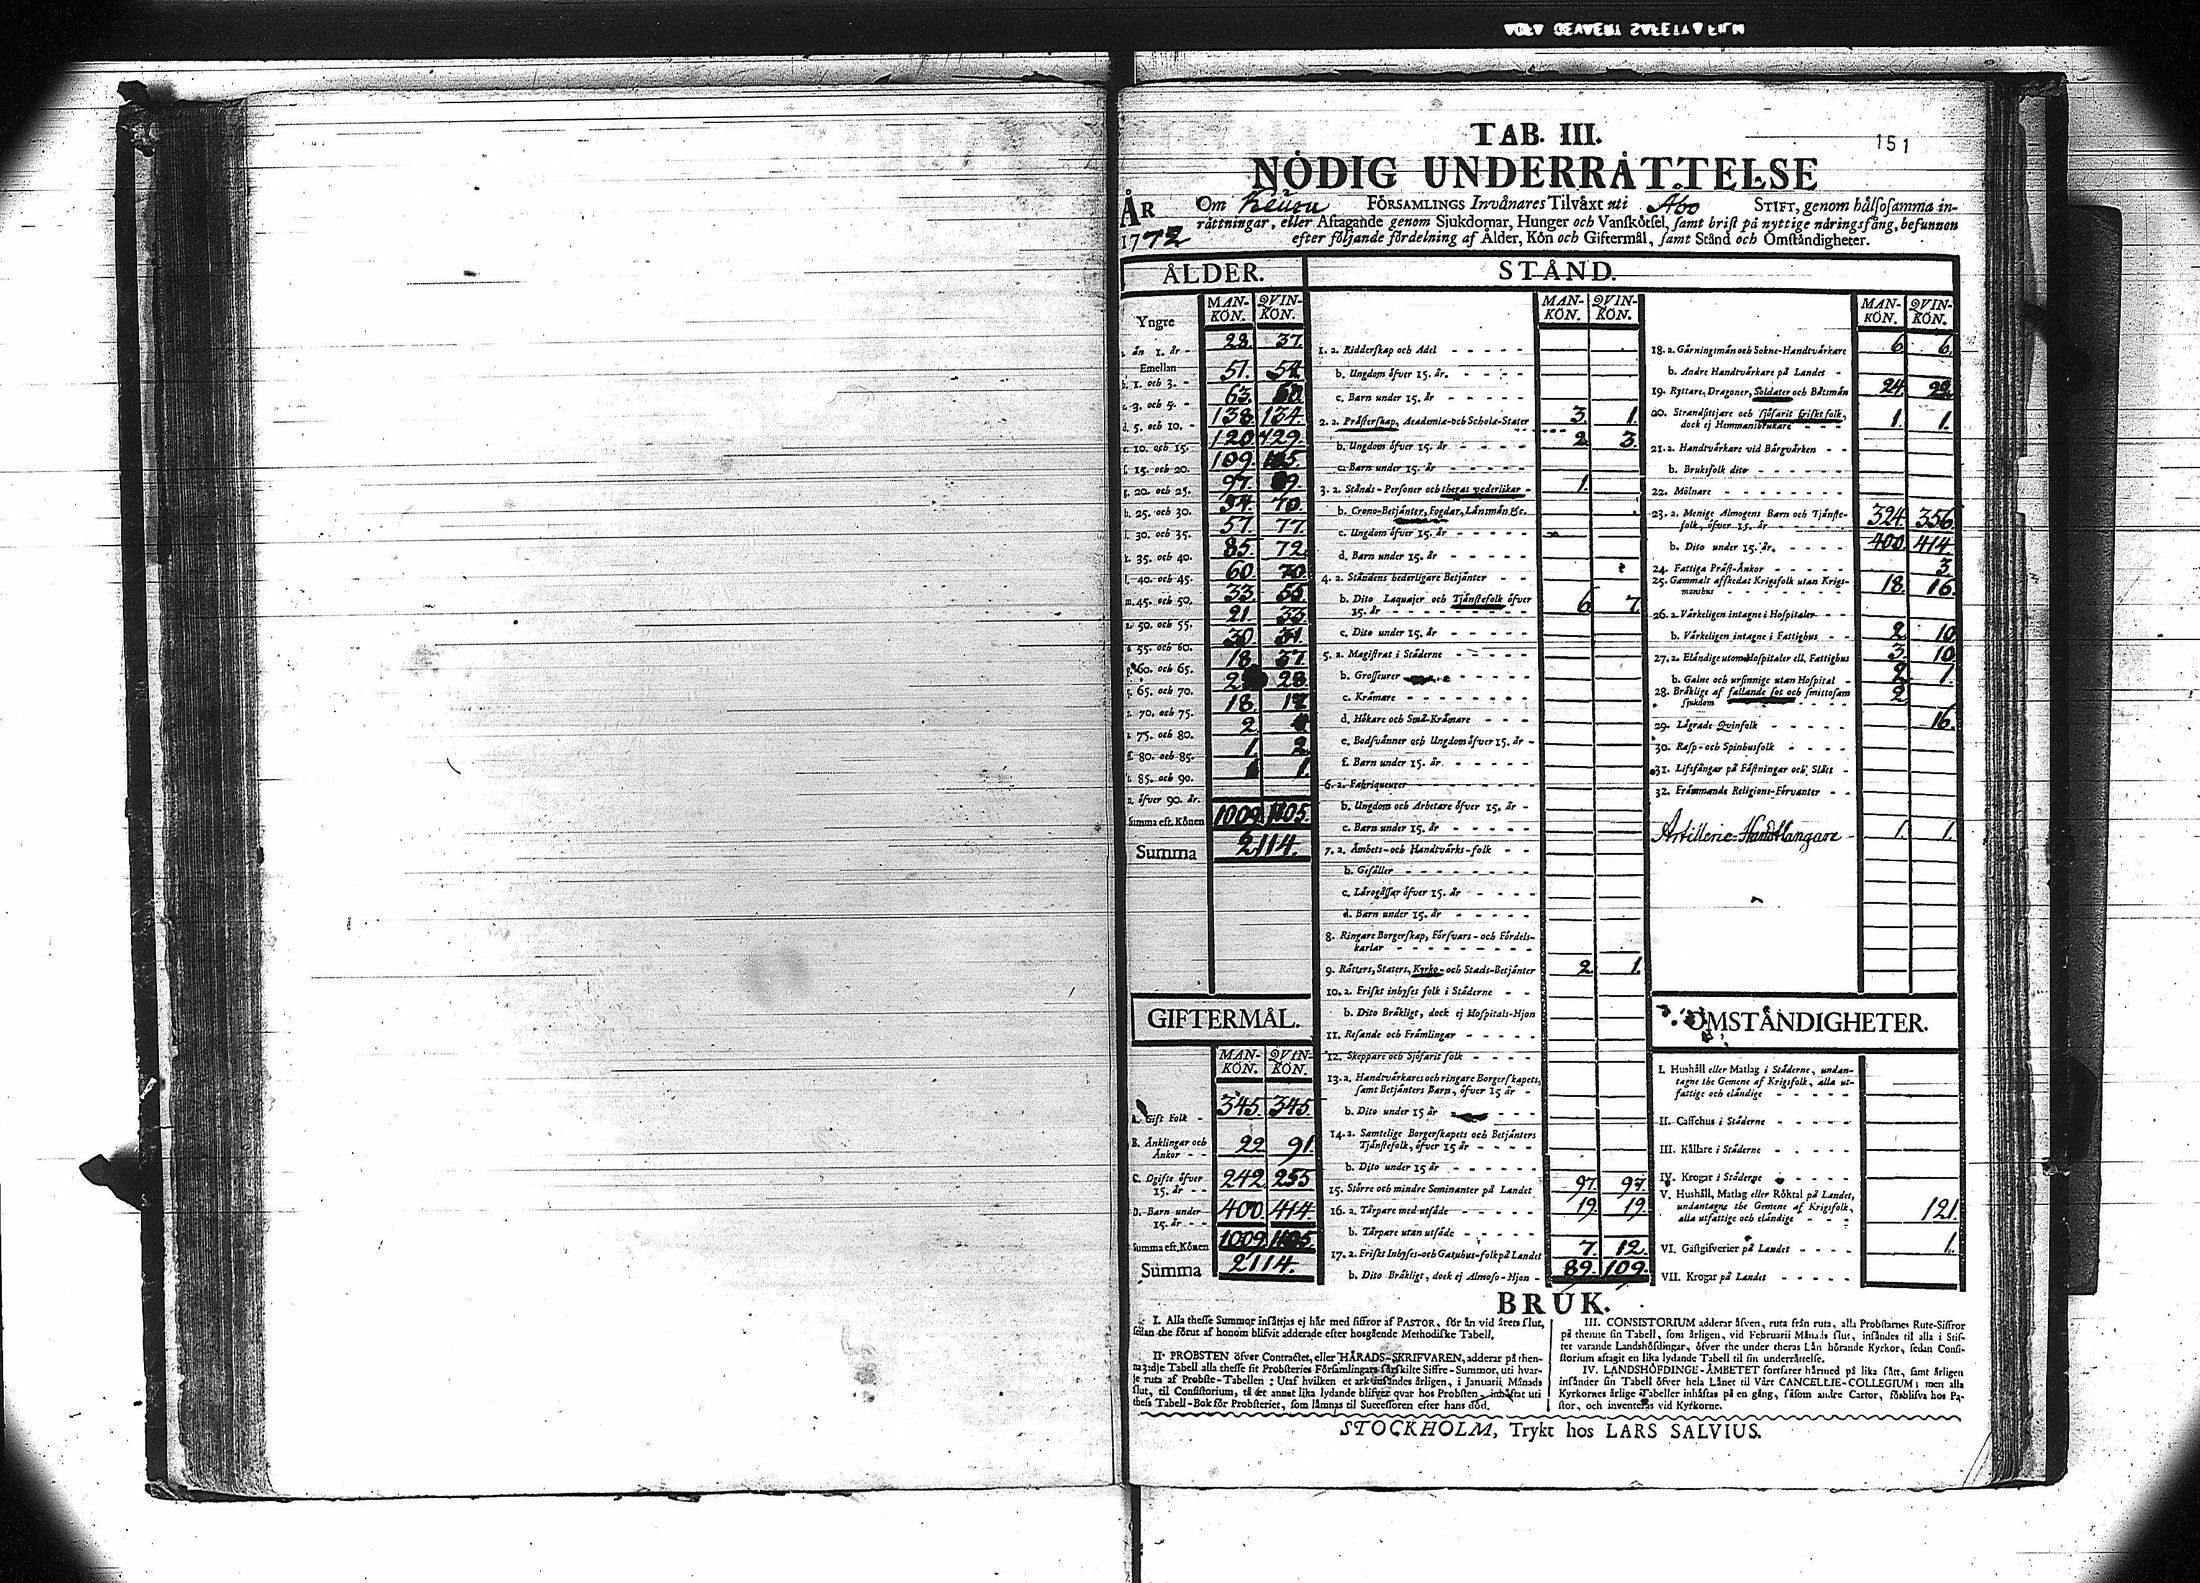 TAB. III.
151
NÖDIG UNDERRÅTTELSE
ÅR 1772
Om FÖRSAMLINGS Invånares Tilvåxt uti Åbo STIFT, genom hålsosamma in-
råttningar, eller Aftagande genom Sjukdomar, Hunger och Vanskötsel, samt brist på nyttige näringsfång, befunnen
efter följande fördelning af Ålder, Kön och Giftermål, samt Stånd och Omståndigheter.
ÅLDER.
MAN-KÖN. QVIN-KÖN.
Yngre
än 1. år - 28. 37.
Emellan
b. 1. och 3. - 51.
c. 3. och 5. - 63.
d. 5. och 10. - 138. 134.
e. 10. och 15. 120. 129.
f. 15. och 20. 109.
g. 20. och 25. 97.
h. 25. och 30. 70.
i. 30. och 35. 57. 77.
k. 35. och 40. 85. 72.
l. 40. och 45. 60. 70.
m. 45. och 50. 33.
n. 50. och 55. 21. 33.
o. 55. och 60. 30. 31.
p. 60. och 65. 18. 37.
q. 65. och 70. 28.
r. 70. och 75. 18.
s. 75. och 80. 2
80. och 85. 1. 2
t. 85. och 90. 1.
u. öfver 90. år.
Summa eft. Könen 1009. 1105.
Summa 2114.
GIFTERMÅL.
MAN-KÖN. QVIN-KÖN.
A. Gift Folk - 345. 345.
B. Änklingar och
Änkor - - 22. 91.
C. Ogifte öfver
15. år - - 242. 255
D. Barn under
15. år - - 400. 414
Summa eft. Könen 1009. 1105.
Summa 2114.
STÅND.
MAN-KÖN. QVIN-KÖN.
1. a. Ridderskap och Adel
b. Ungdom öfver 15. år.
c. Barn under 15. år
2. a. Pråsterskap, Academiæ-och Scholæ-Stater 3. 1.
b. Ungdom öfver 15. år 2 3.
c. Barn under 15. år
3. a. Stånds-Personer och theras vederlikar - 1.
b. Crono-Betjänter, Fogdar, Länsmån &c.
c. Ungdom öfver 15. år
d. Barn under 15. år
4. a. Ståndens hederligare Betjänter
b. Dito Laquajer och Tjänstefolk öfver
15. år 6 7.
c. Dito under 15. år
5. a. Magistrat i Ståderne
b. Grosseurer
c. Kråmare
d. Hökare och Små-Kråmare
e. Bodsvänner och Ungdom öfver 15. år -
f. Barn under 15. år
6. a. Fabriqueurer
b. Ungdom och Arbetare öfver 15. år -
c. Barn under 15. år
7. a. Åmbets-och Handtvårks-folk
b. Gesåller
c. Lärogåssar öfver 15. år
d. Barn under 15. år
8. Ringare Borgerskap, Försvars-och Fördels-
karlar
9. Råtters, Staters, Kyrko-och Stads-Betjänter 2 1.
10. a. Friskt inhyses folk i Ståderne
b. Dito Bråkligt, dock ej Hospitals-Hjon
11. Resande och Fråmlingar
12. Skeppare och Sjöfarit folk
13. a. Handtvårkares och ringare Borgerskapets,
samt Betjänters Barn, öfver 15 år -
b. Dito under 15 år
14. a. Samtelige Borgerskapets och Betjänters
Tjänstefolk, öfver 15 år
b. Dito under 15 år
15. Större och mindre Seminanter på Landet 97. 97.
16. a. Torpare med utsåde 19. 19.
b. Torpare utan utsåde
17. a. Friskt Inhyses-och Gatuhus-folk på Landet 7. 12.
b. Dito Bråkligt, dock ej Almoso-Hjon - 89. 109.
MAN-KÖN. QVIN-KÖN.
18. a. Gårningsmån och Sokne-Handtvårkare 6 6.
b. Andre Handtvårkare på Landet -
19. Ryttare, Dragoner, Soldater och Båtsmån 24. 22.
20. Strandsittjare och sjöfarit friskt folk,
dock ej Hemmansbrukare 1. 1.
21. a. Handtvårkare vid Bårgvårken
b. Bruksfolk dito
22. Mölnare
23. a. Menige Almogens Barn och Tjånste-
folk, öfver 15. år 324. 356.
b. Dito under 15. år. 400. 414.
24. Fattiga Pråst-Änkor 3.
25. Gammalt affskedat Krigsfolk utan Krigs-
manshus 18. 16.
26. a. Vårkeligen intagne i Hospitaler
b. Vårkeligen intagne i Fattighus 2 10
27. a. Elåndige utom Hospitaler ell. Fattighus 3. 10
b. Galne och ursinnige utan Hospital - 2 1.
28. Bråklige af fallande sot och smittosam
sjukdom 2
29. Lågrade Qvinfolk 16.
30. Rasp-och Spinhusfolk
31. Lifsfångar på Fåstningar och Slått
32. Fråmmande Religions-Förvanter
Artillerie-Handtlangare - 1. 1.
OMSTÅNDIGHETER.
I. Hushåll eller Matlag i Ståderne, undan-
tagne the Gemene af Krigsfolk, alla ut-
fattige och elåndige
II. Caffehus i Ståderne
III. Kållare i Ståderne
IV. Krogar i Ståderne
V. Hushåll, Matlag eller Röktal på Landet,
undantagne the Gemene af Krigsfolk,
alla utfattige och elåndige 121.
VI. Gåstgifverier på Landet 1.
VII. Krogar på Landet
BRUK.
I. Alla thesse Summor insåttjas ej hår med siffror af PASTOR, för ån vid årets slut,
sedan the förut af honom blifvit adderade efter hosgående Methodiske Tabell.
II. PROBSTEN öfver Contractet, eller HÅRADS-SKRIFVAREN, adderar på then-
na 3:dje Tabell alla thesse sit Probsteries Församlingars sårskilte Siffre-Summor, uti hvar-
je ruta af Probste-Tabellen: Utaf hvilken et ark insåndes årligen, i Januarii Månads
slut, til Consistorium, tå det annat lika lydande blifver qvar hos Probsten, inhåftat uti
thess Tabell-Bok för Probsteriet, som låmnas til Successoren efter hans död.
III. CONSISTORIUM adderar åfven, ruta från ruta, alla Probstarnes Rute-Siffror
på thenne sin Tabell, som årligen, vid Februarii Månads slut, insåndes til alla i Stif-
tet varande Landshöfdingar, öfver the under theras Lån hörande Kyrkor, sedan Consi-
storium aftagit en lika lydande Tabell til sin underråttelse.
IV. LANDSHÖFDINGE-ÅMBETET fortfarer hårmed på lika sått, samt årligen
insånder sin Tabell öfver hela Lånet til Vårt CANCELLIE-COLLEGIUM; men alla
Kyrkornes årlige Tabeller inhåftas på en gång, såsom andre Cartor, förblifva hos Pa-
stor, och inventeras vid Kyrkorne.
STOCKHOLM, Trykt hos LARS SALVIUS.